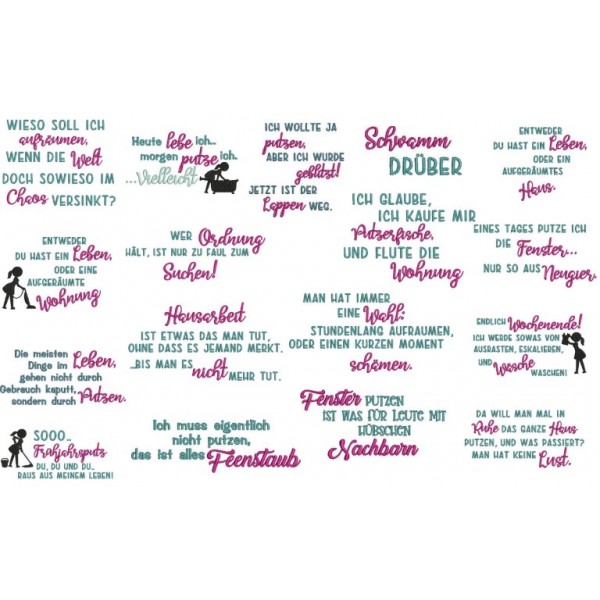 WIESO SOLL ICH
aufräumen,
WENN DIE Welt
DOCH SOWIESO IM
Chaos VERSINKT?
Heute lebe ich...
morgen putze ich.
...Vielleicht
ICH WOLLTE JA
putzen,
ABER ICH WURDE
geblitzt!
JETZT IST DER
Lappen WEG.
Schwamm
DRÜBER
ENTWEDER
DU HAST EIN Leben,
ODER EIN
AUFGERÄUMTES
Haus.
ENTWEDER
DU HAST EIN Leben,
ODER EINE
AUFGERÄUMTE
Wohnung
WER Ordnung
HÄLT, IST NUR ZU FAUL ZUM
Suchen!
ICH GLAUBE,
ICH KAUFE MIR
Putzerfische,
UND FLUTE DIE
Wohnung
EINES TAGES PUTZE ICH
DIE Fenster...
NUR SO AUS Neugier.
Hausarbeit
IST ETWAS DAS MAN TUT,
OHNE DASS ES JEMAND MERKT.
...BIS MAN ES
nicht MEHR TUT.
MAN HAT IMMER
EINE Wahl:
STUNDENLANG AUFRÄUMEN,
ODER EINEN KURZEN MOMENT
schämen.
ENDLICH Wochenende!
ICH WERDE SOWAS VON
AUSRASTEN, ESKALIEREN,
UND Wäsche
WASCHEN!
Die meisten
Dinge im Leben,
gehen nicht durch
Gebrauch kaputt,
sondern durch Putzen.
SOOO...
Frühjahrsputz
DU, DU UND DU...
RAUS AUS MEINEM LEBEN!
Ich muss eigentlich
nicht putzen,
das ist alles Feenstaub
Fenster PUTZEN
IST WAS FÜR LEUTE MIT
HÜBSCHEN
Nachbarn
DA WILL MAN MAL IN
Ruhe DAS GANZE Haus
PUTZEN, UND WAS PASSIERT?
MAN HAT KEINE
Lust.